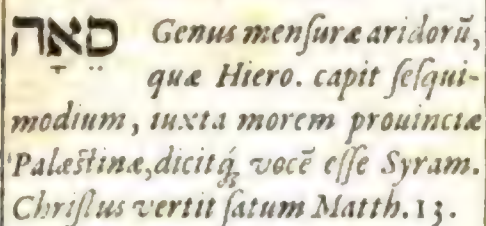 סֵאָה Genus menſuræ aridorũ,
quæ Hiero. capit ſeſqui-
modium, iuxta morem prouinciæ
Palæſtinæ, dicitq́ꝫ vocẽ eſſe Syram.
Chriſtus vertit ſatum Matth. 13.